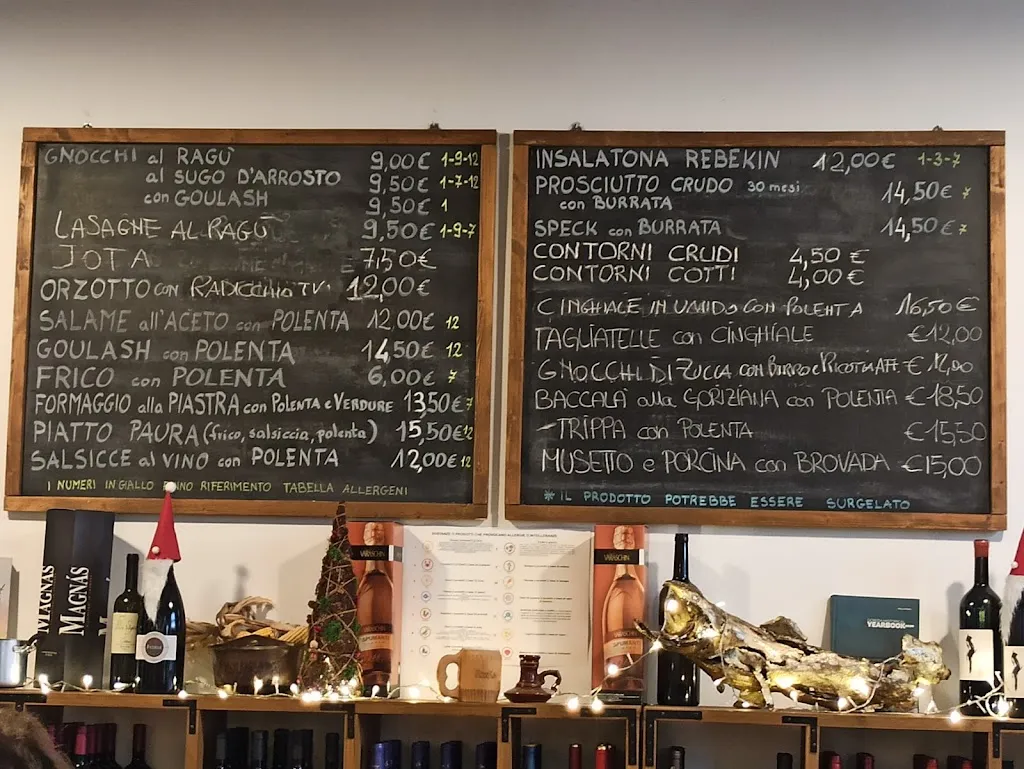 GNOCCHI al RAGÙ 9,00€ 1-9-12
al SUGO D'ARROSTO 9,50€ 1-7-12
con GOULASH 9,50€ 1
LASAGNE AL RAGÙ 9,50€ 1-9-7
JOTA 7,50€
ORZOTTO con RADICCHIO TV 12,00€
SALAME all'ACETO con POLENTA 12,00€ 12
GOULASH con POLENTA 14,50€ 12
FRICO con POLENTA 6,00€ 7
FORMAGGIO alla PIASTRA con POLENTA e VERDURE 13,50€ 7
PIATTO PAURA (frico, salsiccia, polenta) 15,50€ 12
SALSICCE al VINO con POLENTA 12,00€ 12
I NUMERI IN GIALLO FANNO RIFERIMENTO TABELLA ALLERGENI
INSALATONA REBEKIN 12,00€ 1-3-7
PROSCIUTTO CRUDO 30 mesi
con BURRATA 14,50€ 7
SPECK con BURRATA 14,50€ 7
CONTORNI CRUDI 4,50 €
CONTORNI COTTI 4,00€
CINGHIALE IN UMIDO CON POLENTA 16,50€
TAGLIATELLE con CINGHIALE €12,00
GNOCCHI DI ZUCCA con BURRO e RICOTTA AFF. €
BACCALÀ alla GORIZIANA con POLENTA €18,50
-TRIPPA con POLENTA €15,50
MUSETTO e PORCINA con BROVADA €15,00
* IL PRODOTTO POTREBBE ESSERE SURGELATO
MAGNÁS
MAGNÁS
YEARBOOK